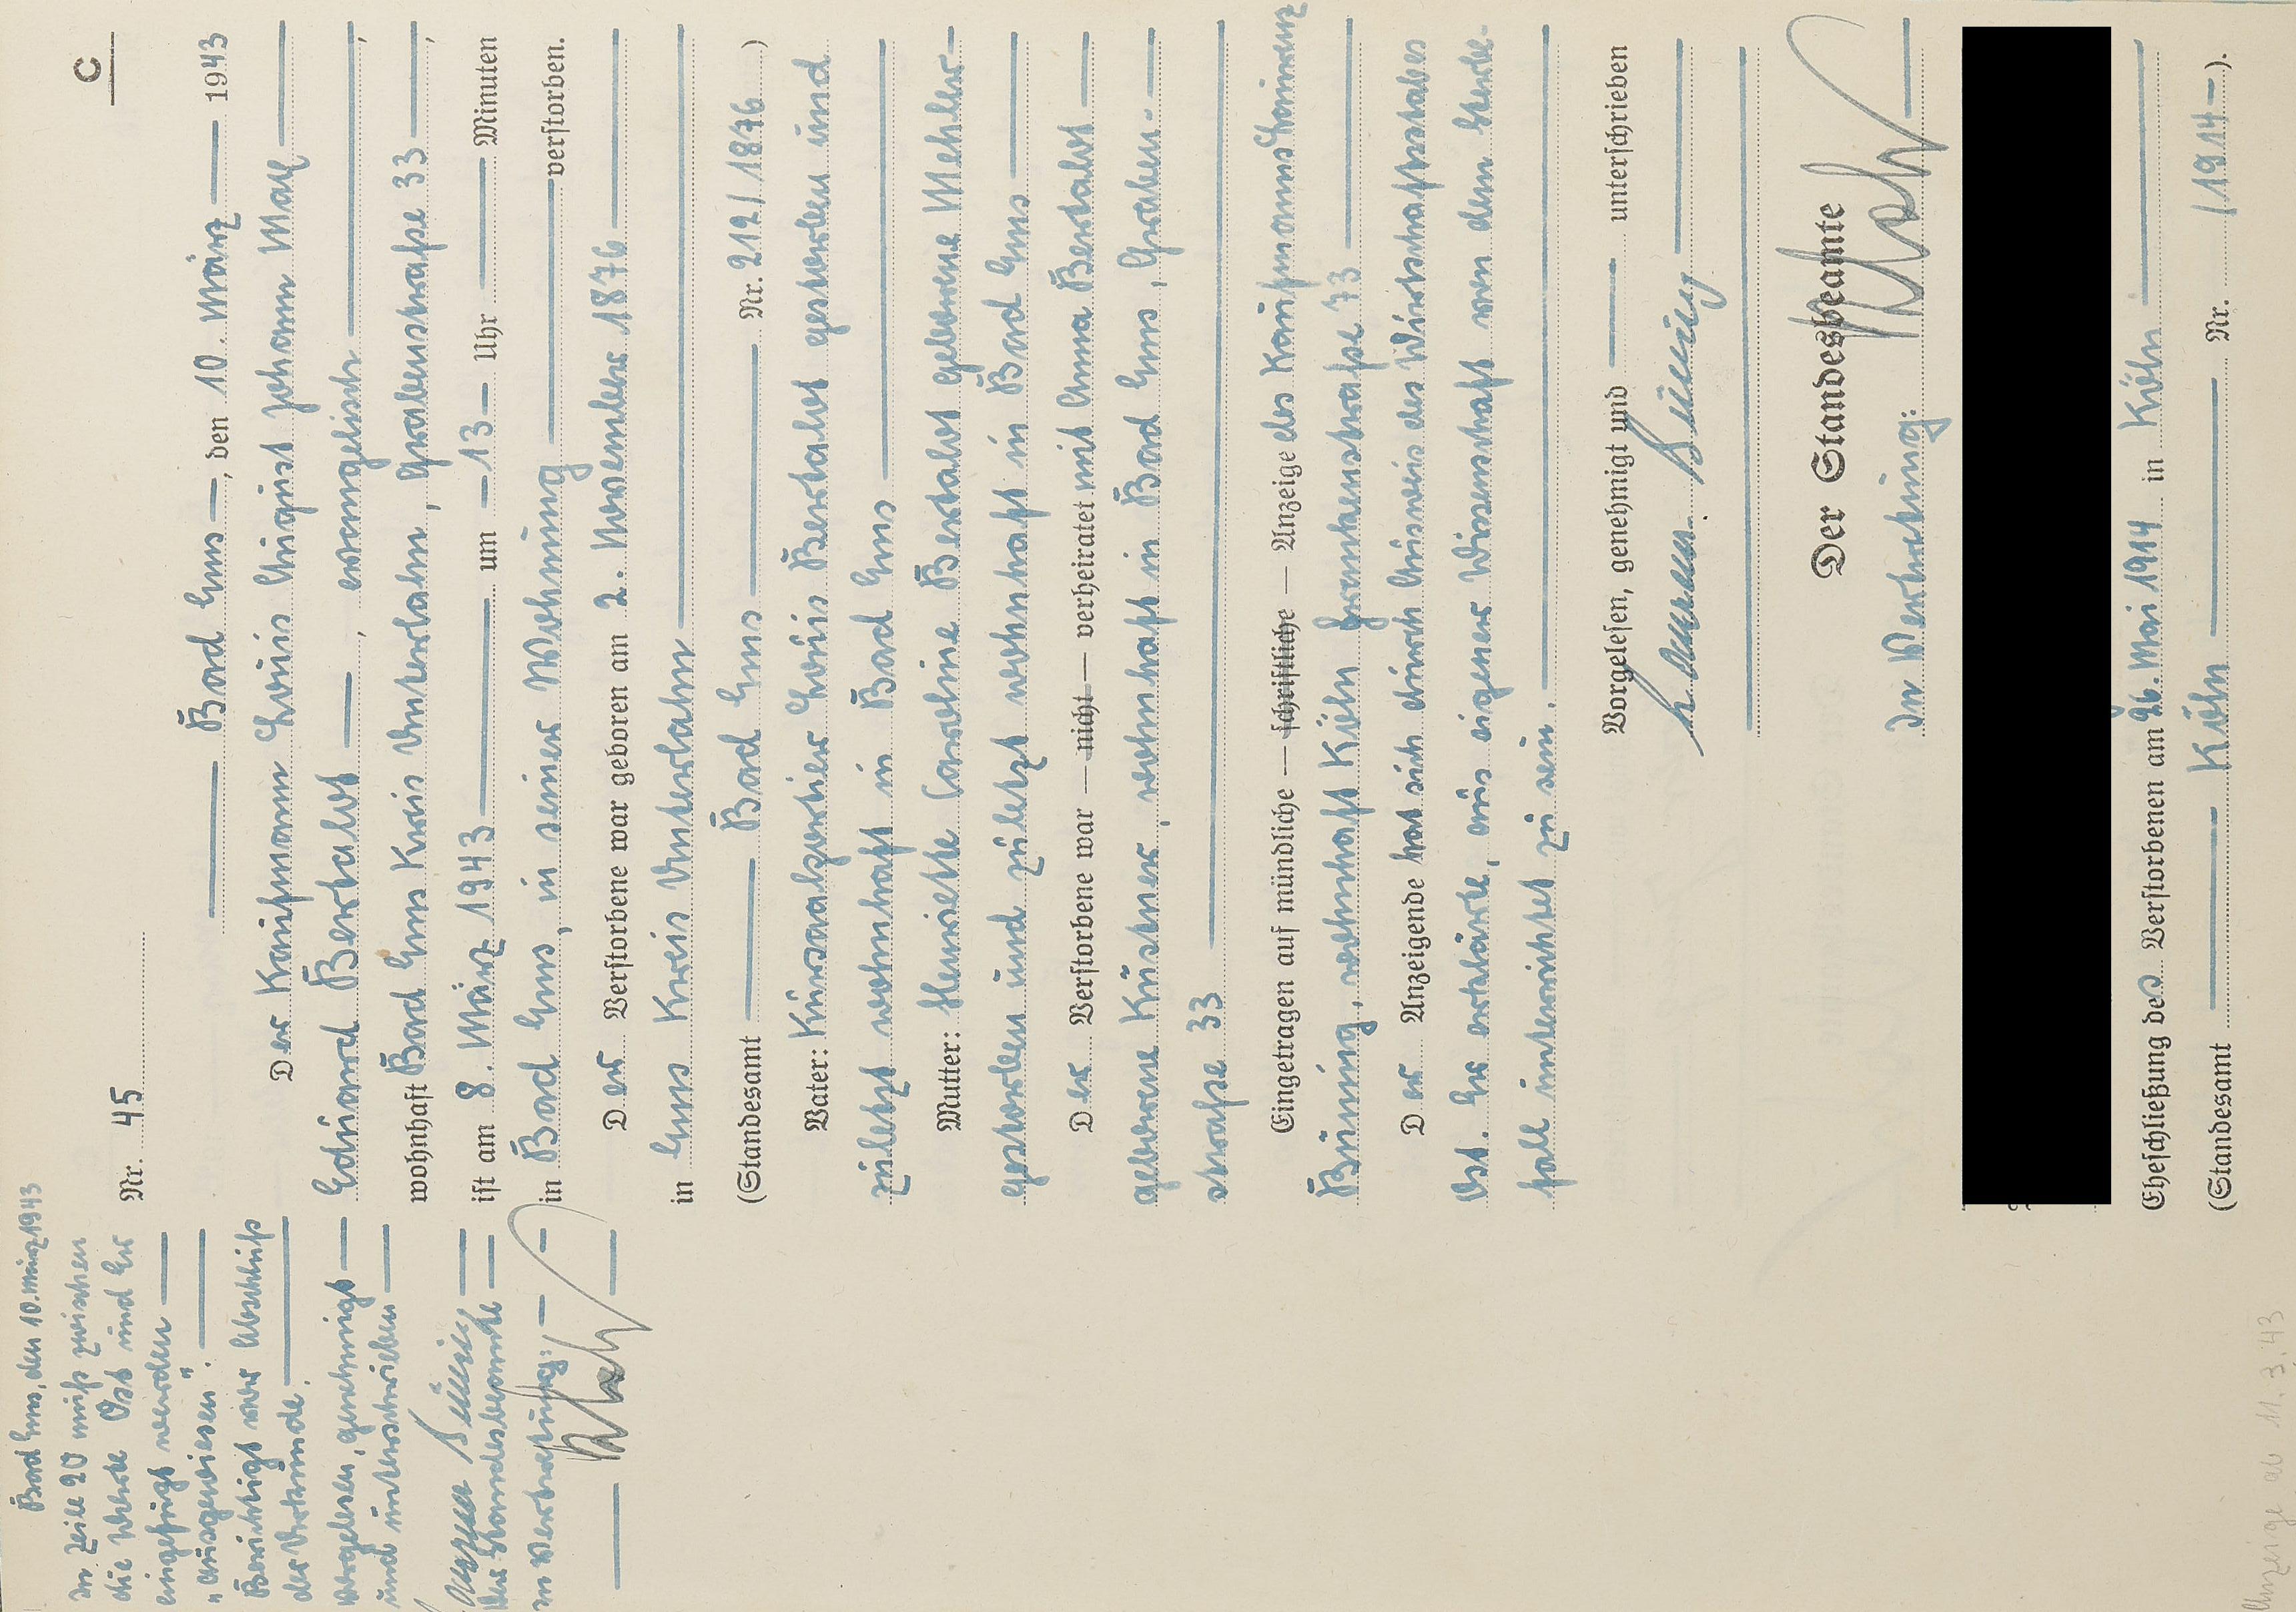 C
Nr. 45
Bad Ems, den 10. März 1943
Der Kaufmann Louis August Johann Max
Eduard Bertalot, evangelisch,
wohnhaft Bad Ems Kreis Unterlahn, Grabenstraße 33,
ist am 8. März 1943 um 13 Uhr Minuten
in Bad Ems, in seiner Wohnung verstorben.
Der Verstorbene war geboren am 2. November 1876
in Ems Kreis Unterlahn
(Standesamt Bad Ems Nr. 212/1876)
Vater: Kursaalportier Louis Bertalot gestorben und
zuletzt wohnhaft in Bad Ems
Mutter: Henriette Caroline Bertalot geborene Mehler
gestorben und zuletzt wohnhaft in Bad Ems
Der Verstorbene war — nicht — verheiratet mit Anna Bertalot
geborene Küstner, wohnhaft in Bad Ems, Graben-
straße 33
Eingetragen auf mündliche — schriftliche — Anzeige des Kaufmanns
Büning, wohnhaft Köln 73
Der Anzeigende hat sich durch Ausweis des Wirtschaftsstabes
Ost. Er erklärte, aus eigener Wissenschaft von dem Sterbe-
fall unterrichtet zu sein.
Vorgelesen, genehmigt und unterschrieben
Büning
Der Standesbeamte
In Vertretung:
Eheschließung des Verstorbenen am 26. Mai 1914 in Köln
(Standesamt Köln Nr. /1914).
Bad Ems, den 10. März 1943
In Zeile 20 muß zwischen
die Worte Ost und Er
eingefügt werden
„ausgewiesen".
Berichtigt vor Abschluß
der Urkunde.
Vorgelesen, genehmigt
und unterschrieben
Büning
Der Standesbeamte
In Vertretung:
Anzeige ab 11.3.43